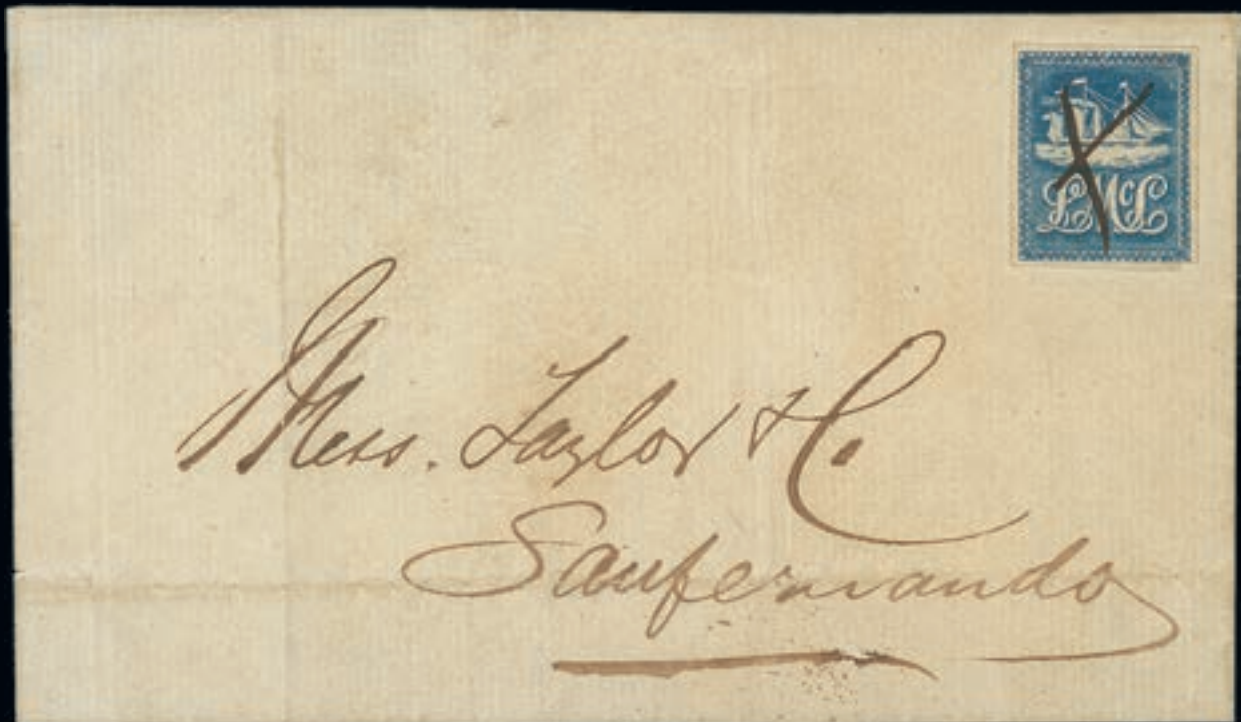 LMcL
Mess. Taylor & Co.
Sanfernando